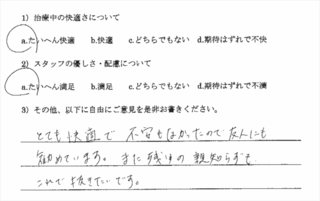 1) 治療中の快適さについて
a.たいへん快適 b.快適 c.どちらでもない d.期待はずれで不快
2) スタッフの優しさ・配慮について
a.たいへん満足 b.満足 c.どちらでもない d.期待はずれで不満
3) その他、以下に自由にご意見を是非お書きください。
とても快適で 不安もなかったので友人にも
勧めています。また残りの親知らずも
これで抜きたいです。